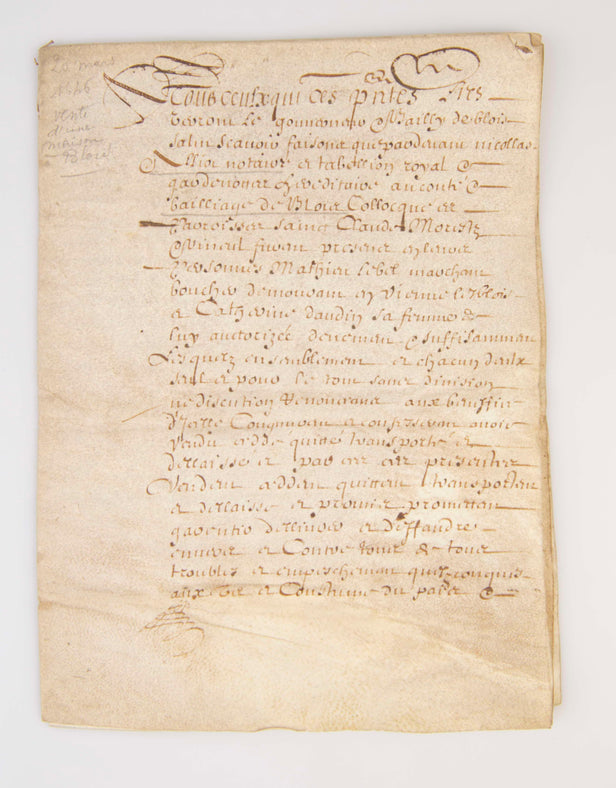 20 mars
1646
Vente
d'une
maison
Blois
A Tous ceulx qui ces pntes lres
verront Le gouverneur & Bailly de blois
salut scavoir faisons que pardevant nicollas
Allion notaire et tabellion royal &
gardenotte hereditaire au conté &
bailliage de Blois Collocque es
parroisses sainct Claude Morest
& vineuil furent presens en leurs
personnes Mathieu lebel marchant
boucher demourant en Vienne lez blois
et Catherine daudin sa femme de
luy auctorizée deuement & suffisamment
Lesquelz ensemblement et chacun deulx
seul et pour le tout sans division
ne discution Renoncans aux benffice
d'jcelle Congnurent et confesserent avoir
vendu ceddé quitté transporté et
dellaissé et par ces pres presentes
Vendent ceddent quittent transportent
et dellaisse et promis promettent
garentir dellivrer et deffandre
envers et Contre tous de tous
troubles et empeschemens quelzconques
aux us et Coustume du païs &